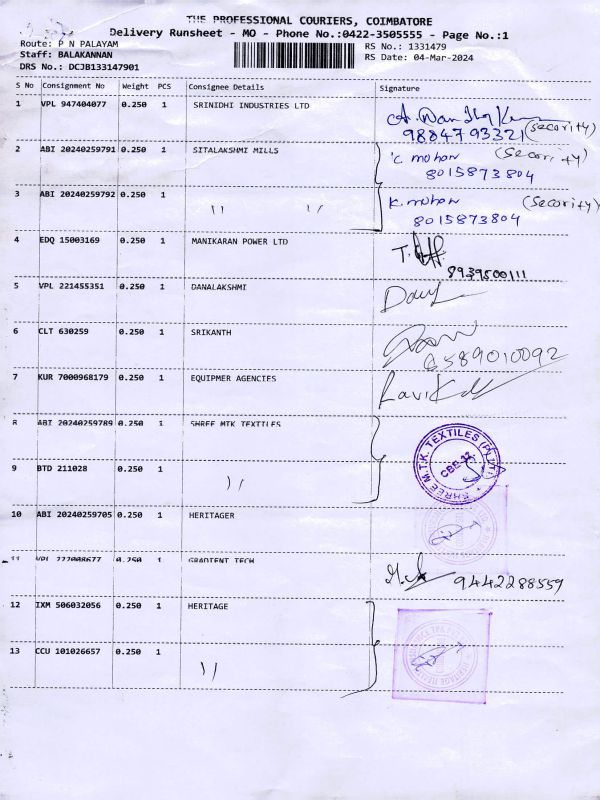 THE PROFESSIONAL COURIERS, COIMBATORE
Delivery Runsheet - MO - Phone No.:0422-3505555 - Page No.:1
Route: P N PALAYAM
Staff: BALAKANNAN
DRS No.: DCJB133147901
RS No.: 1331479
RS Date: 04-Mar-2024
S No Consignment No Weight PCS Consignee Details Signature
1 VPL 947404077 0.250 1 SRINIDHI INDUSTRIES LTD
9884793321 (security)
2 ABI 20240259791 0.250 1 SITALAKSHMI MILLS
C. mohan (Security)
8015873804
3 ABI 20240259792 0.250 1 " "
K. mohan (Security)
8015873804
4 EDQ 15003169 0.250 1 MANIKARAN POWER LTD
8939500111
5 VPL 221455351 0.250 1 DANALAKSHMI
6 CLT 630259 0.250 1 SRIKANTH
7 KUR 7000968179 0.250 1 EQUIPMER AGENCIES
8 ABI 20240259789 0.250 1 SHREE MTK TEXTILES
SHREE M.T.K. TEXTILES (P) LTD
9 BTD 211028 0.250 1 "
10 ABI 20240259705 0.250 1 HERITAGER
11 VPL 222008677 0.250 1 GRADIENT TECH
9442288559
12 IXM 506032056 0.250 1 HERITAGE
13 CCU 101026657 0.250 1 "